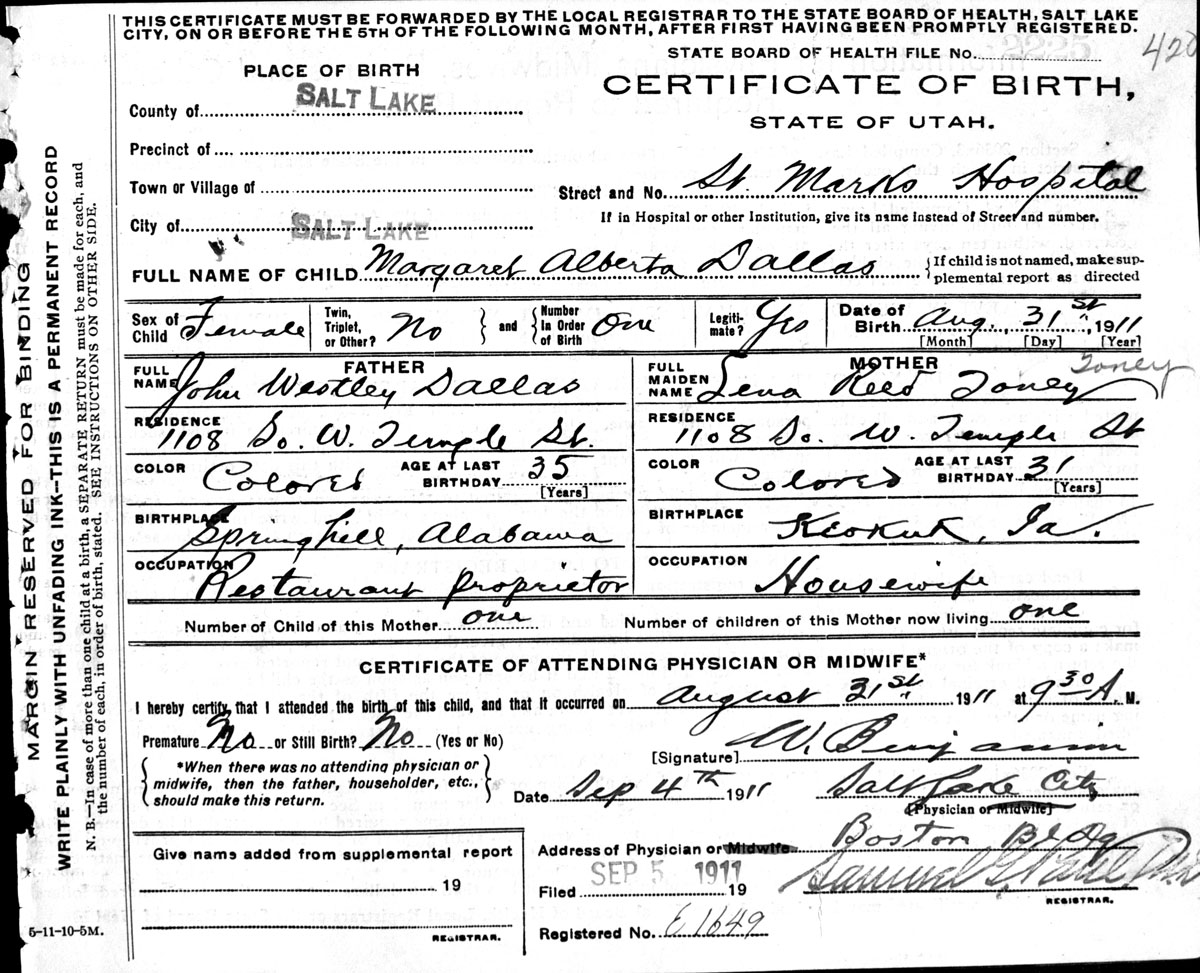 THIS CERTIFICATE MUST BE FORWARDED BY THE LOCAL REGISTRAR TO THE STATE BOARD OF HEALTH, SALT LAKE
CITY, ON OR BEFORE THE 5TH OF THE FOLLOWING MONTH, AFTER FIRST HAVING BEEN PROMPTLY REGISTERED.
STATE BOARD OF HEALTH FILE No.
PLACE OF BIRTH
CERTIFICATE OF BIRTH,
STATE OF UTAH.
County of SALT LAKE
Precinct of
Town or Village of
Street and No. St. Marks Hospital
If in Hospital or other Institution, give its name instead of Street and number.
City of SALT LAKE
FULL NAME OF CHILD Margaret Alberta Dallas
If child is not named, make sup-
plemental report as directed
Sex of Child Female
Twin, Triplet, or Other? No
and Number In Order of Birth One
Legiti-mate? Yes
Date of Birth Aug. 31st, 1911
[Month] [Day] [Year]
FATHER
FULL NAME John Westley Dallas
RESIDENCE 1108 So. W. Temple St.
COLOR Colored
AGE AT LAST BIRTHDAY 35
[Years]
BIRTHPLACE Springhill, Alabama
OCCUPATION Restaurant Proprietor
MOTHER
Toney
FULL MAIDEN NAME Lena Reed Toney
RESIDENCE 1108 So. W. Temple St
COLOR Colored
AGE AT LAST BIRTHDAY 31
[Years]
BIRTHPLACE Keokuk, Ia.
OCCUPATION Housewife
Number of Child of this Mother one
Number of children of this Mother now living one
CERTIFICATE OF ATTENDING PHYSICIAN OR MIDWIFE*
I hereby certify that I attended the birth of this child, and that it occurred on August 31st 1911 at 9 30 A. M.
Premature No or Still Birth? No (Yes or No)
[Signature] W. Benjamin
*When there was no attending physician or
midwife, then the father, householder, etc.,
should make this return.
Date Sep 4th 1911
Salt Lake City
[Physician or Midwife]
Address of Physician or Midwife Boston Bldg
Give name added from supplemental report
19
REGISTRAR.
Filed SEP 5 1911 19
REGISTRAR.
Registered No. E1649
5-11-10-5M.
MARGIN RESERVED FOR BINDING
WRITE PLAINLY WITH UNFADING INK—THIS IS A PERMANENT RECORD
N. B.—In case of more than one child at a birth, a SEPARATE RETURN must be made for each, and
the number of each, in order of birth, stated. SEE INSTRUCTIONS ON OTHER SIDE.